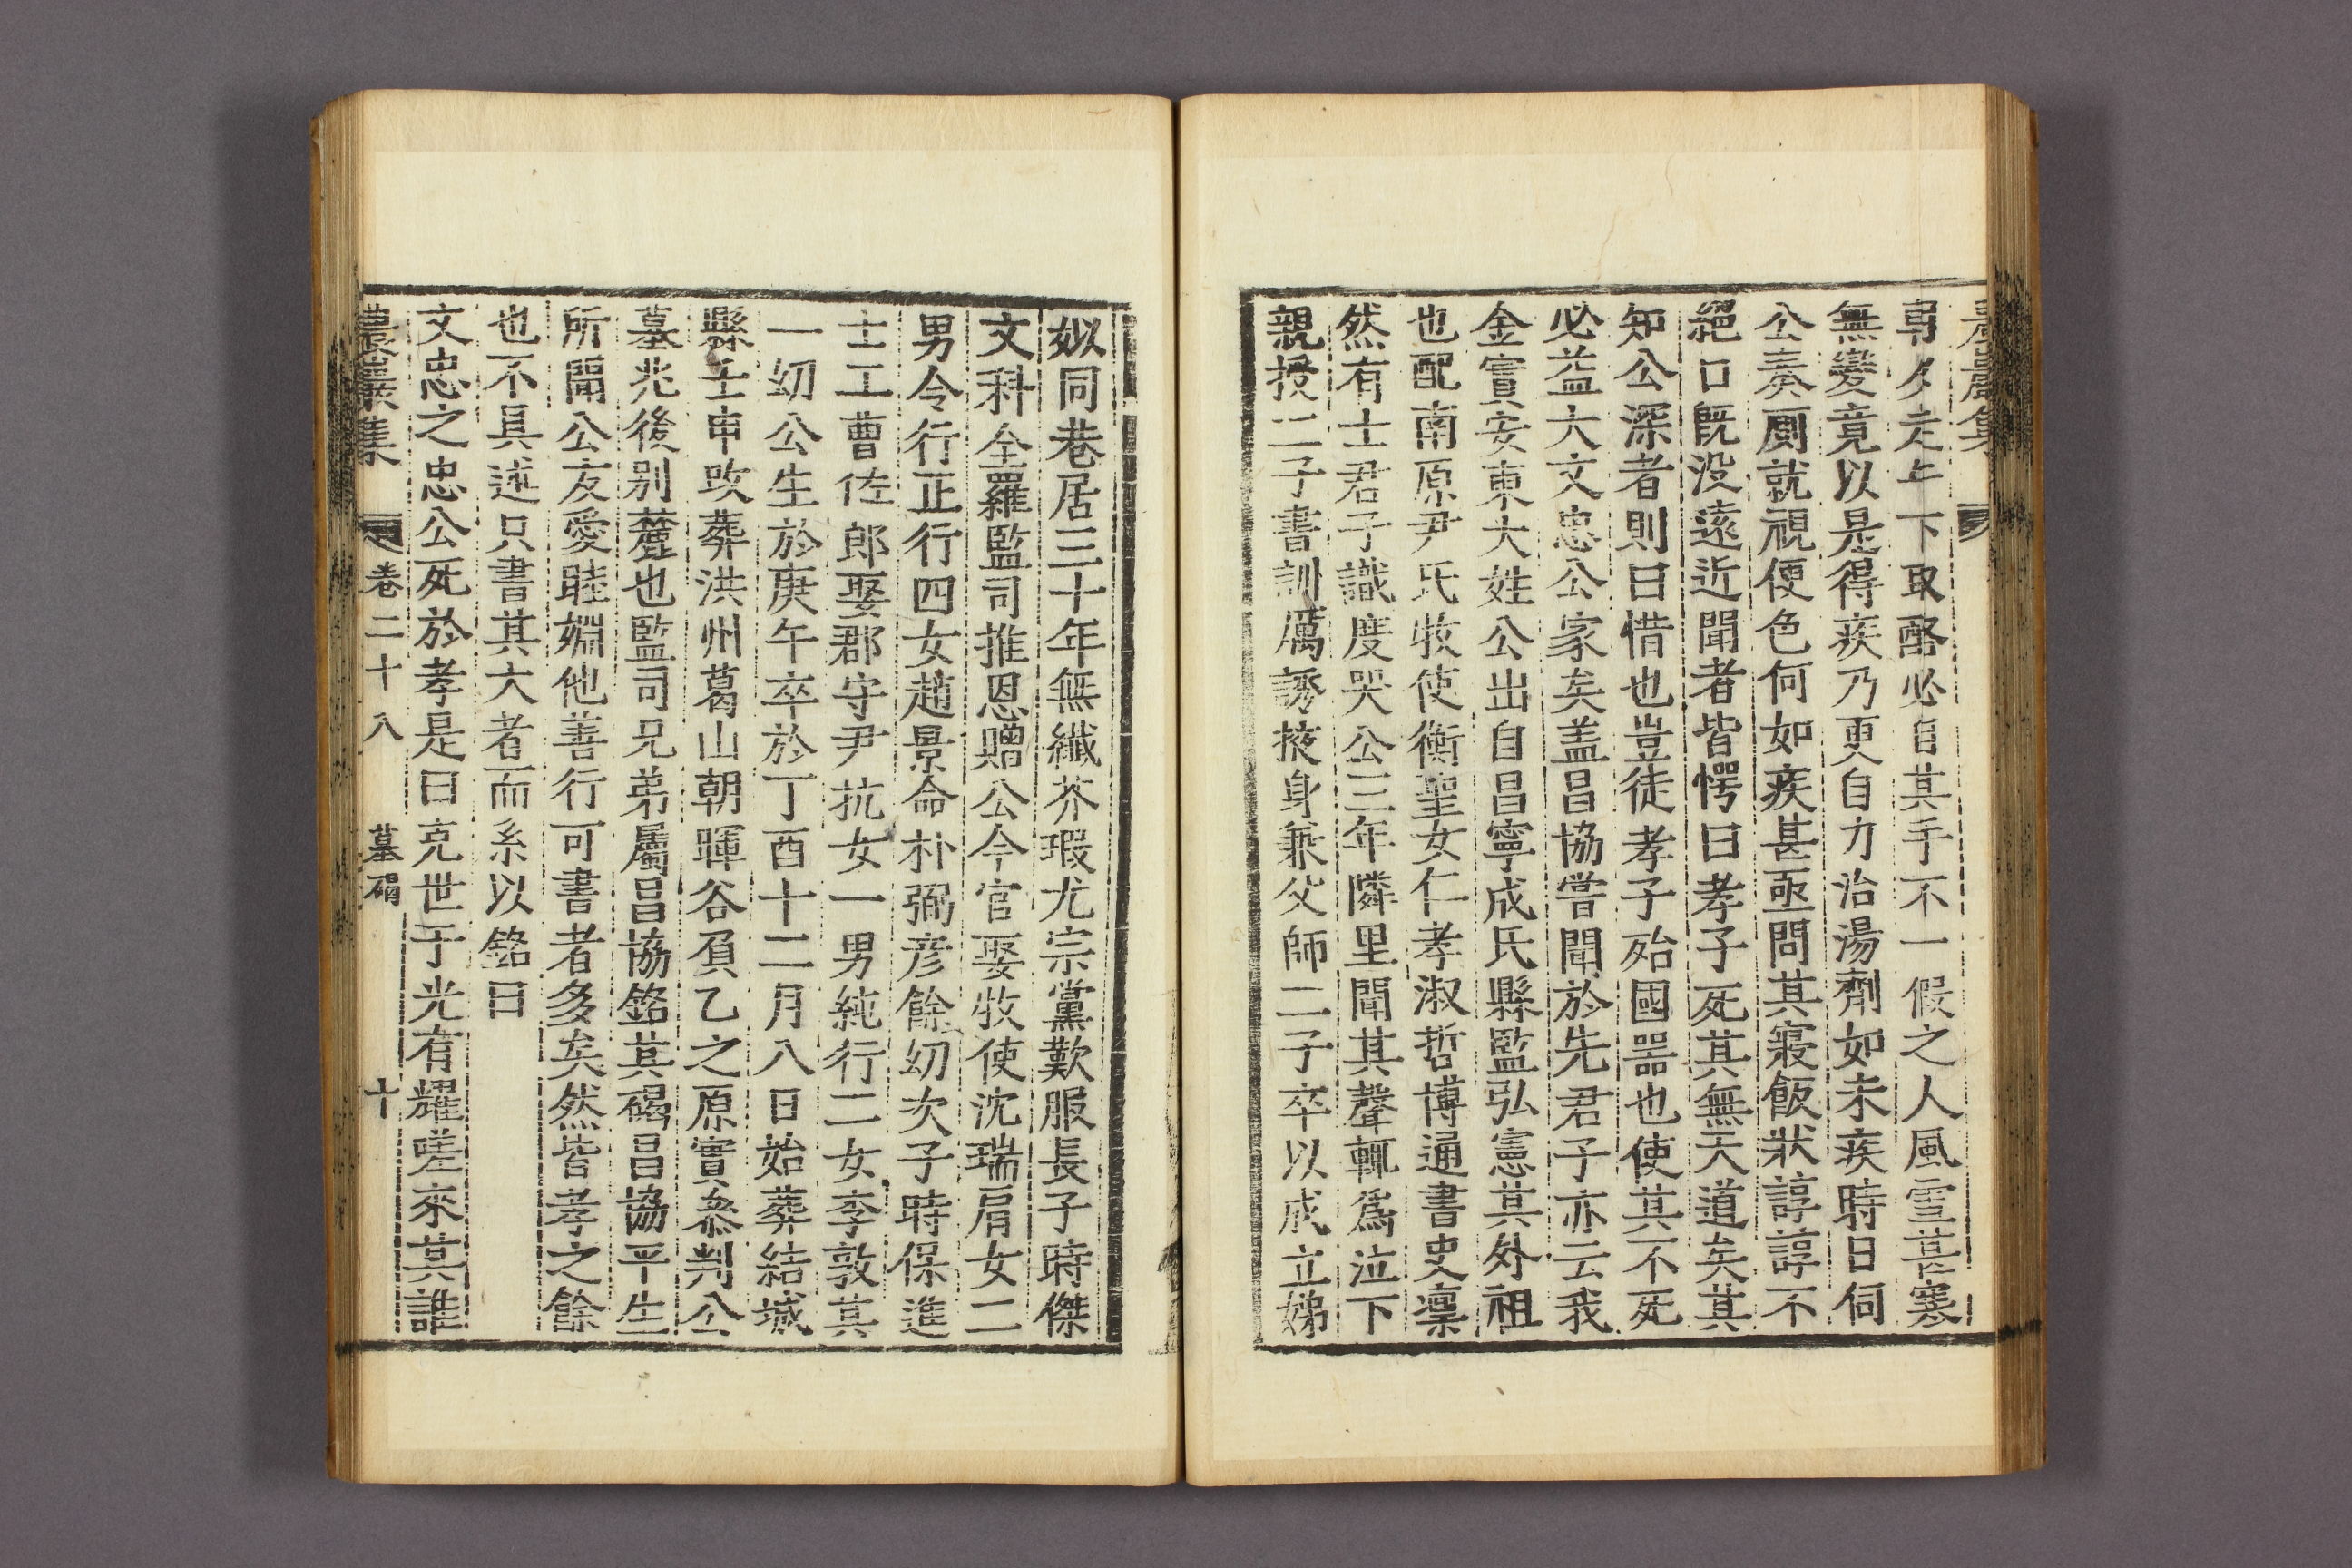 農巖集
朝夕走上下取醪必自其手不一假之人風雪甚寒
無變竟以是得疾乃更自力治湯劑如未疾時日伺
公奏厠就視便色何如疾甚亟問其寢飯狀諄諄不
絕口旣沒遠近聞者皆愕曰孝子死其無天道矣其
知公深者則曰惜也豈徒孝子殆國器也使其不死
必益大文忠公家矣盖昌協嘗聞於先君子亦云我
金實安東大姓公出自昌寧成氏縣監弘憲其外祖
也配南原尹氏牧使衡聖女仁孝淑哲博通書史凜
然有士君子識度哭公三年隣里聞其聲輒爲泣下
親授二子書訓厲誘掖身兼父師二子卒以成立娣
姒同巷居三十年無纖芥瑕尤宗黨歎服長子時傑
文科全羅監司推恩贈公今官娶牧使沈瑞肩女二
男令行正行四女趙景命朴弼彦餘幼次子時保進
士工曹佐郎娶郡守尹抗女一男純行二女李敦其
一幼公生於庚午卒於丁酉十二月八日始葬結城
縣壬申改葬洪州葛山朝暉谷負乙之原實參判公
墓兆後別麓也監司兄弟屬昌協銘其碣昌協平生
所聞公友愛睦婣他善行可書者多矣然皆孝之餘
也不具述只書其大者而系以銘曰
文忠之忠公死於孝是曰克世于光有耀嗟來其誰
農巖集 卷二十八 墓碣 十